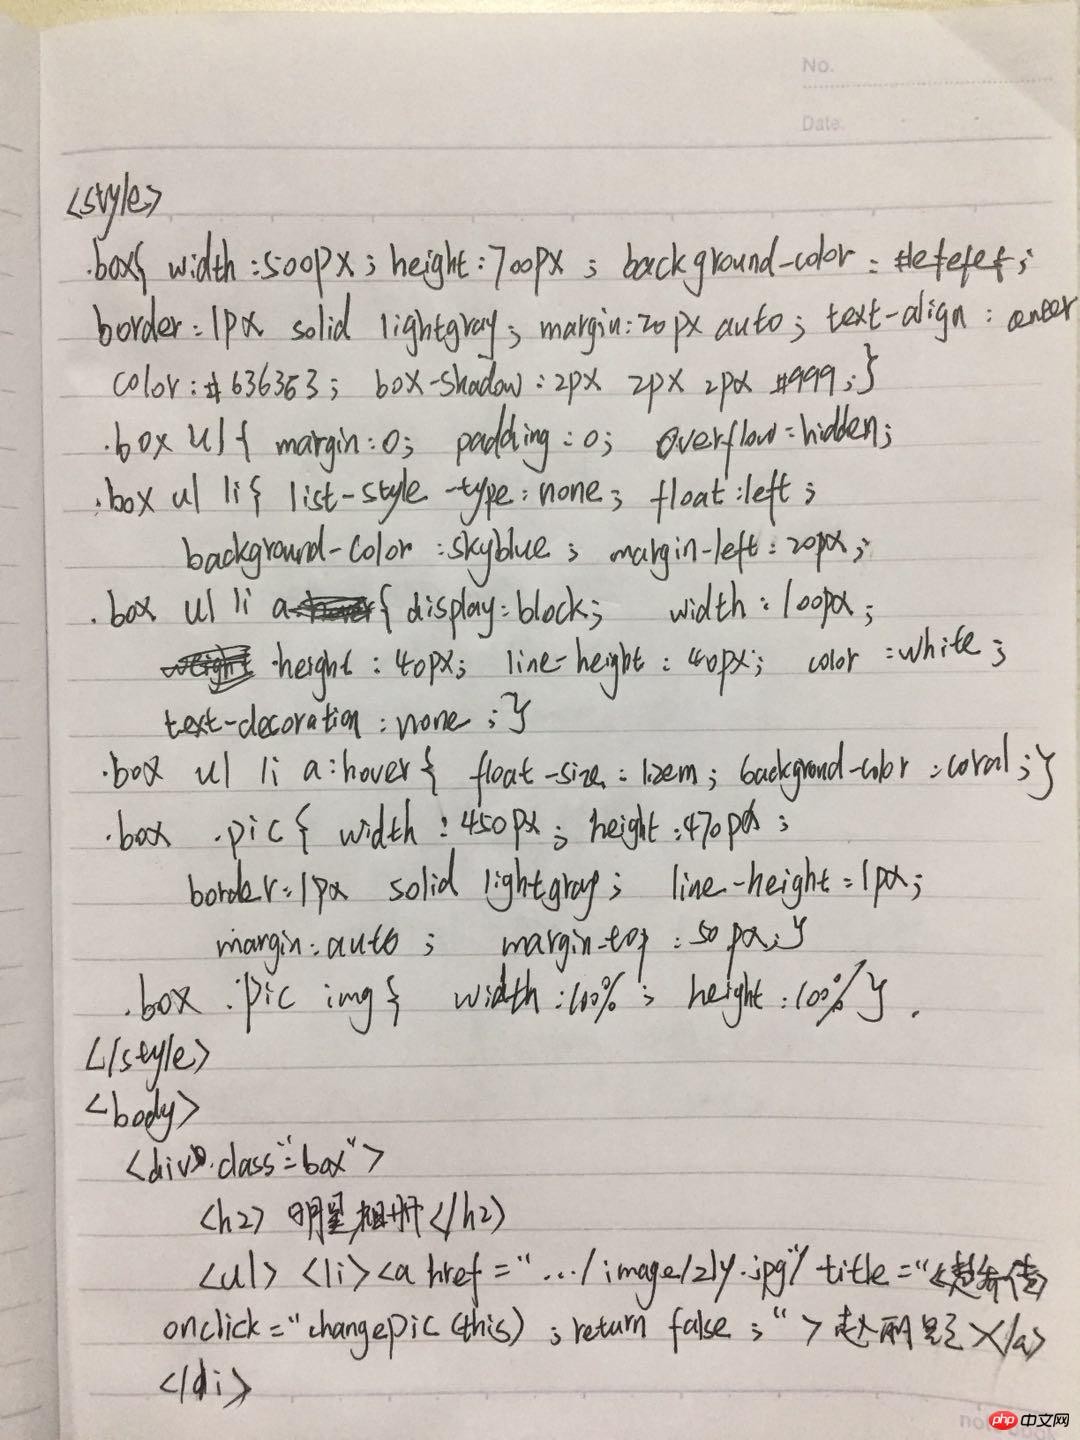 No.
Date.
<style>
.box{ width:500px; height:700px; background-color:#efefef;
border:1px solid lightgray; margin:20px auto; text-align:center
color:#636363; box-shadow:2px 2px 2px #999;}
.box ul{ margin:0; padding:0; overflow:hidden;
.box ul li{ list-style-type:none; float:left;
background-color:skyblue; margin-left:20px;
.box ul li a{ display:block; width:100px;
height:40px; line-height:40px; color:white;
text-decoration:none;}
.box ul li a:hover{ float-size:1.2em; background-color:coral;}
.box .pic{ width:450px; height:470px;
border:1px solid lightgray; line-height:1px;
margin:auto; margin-top:50px;}
.box .pic img{ width:100%; height:100%}.
</style>
<body>
<div class="box">
<h2>明星相册</h2>
<ul> <li><a href=".../image/zly.jpg" title="<楚乔传>
onclick="changepic(this);return false;">赵丽颖</a>
</di>
note book
php 中文网